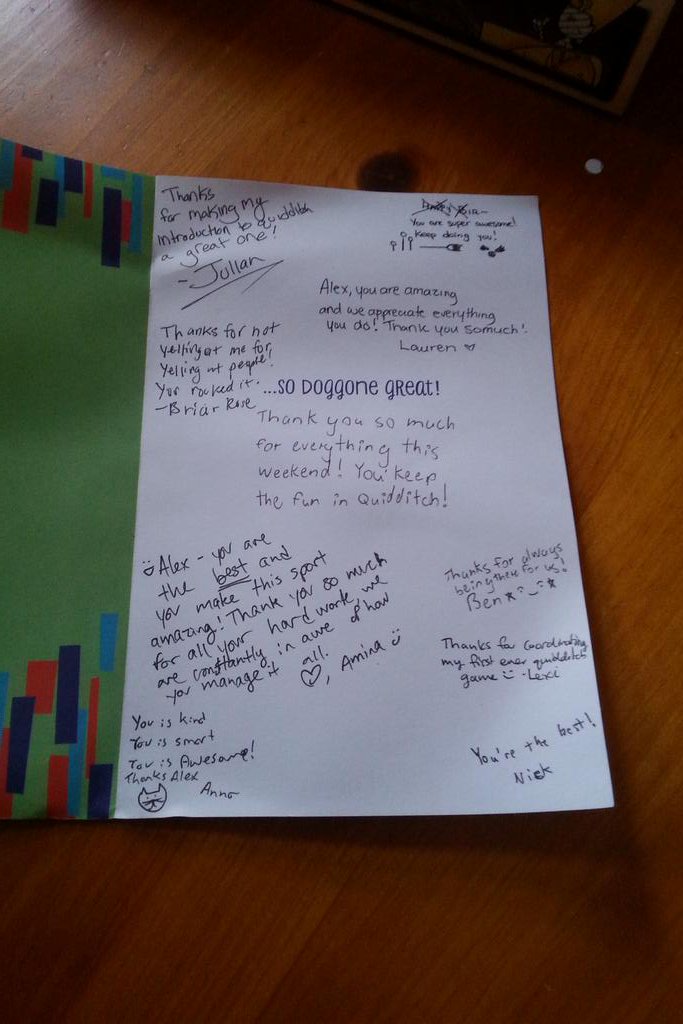 Thanks
for making my
introduction to quidditch
a great one!
- Julian
You are super awesome!
Keep doing you!
Alex, you are amazing
and we appreciate everything
you do! Thank you so much!
Lauren
Thanks for not
yelling at me for
yelling at people!
You rocked it.
- Briar Rose
...SO DOGGONE GREAT!
Thank you so much
for everything this
weekend! You keep
the fun in Quidditch!
Alex - you are
the best and
you make this sport
amazing! Thank you so much
for all your hard work, we
are constantly in awe of how
you manage it all.
, Amina
Thanks for always
being there for us!
Ben
Thanks for coordinating
my first ever quidditch
game - Lexi
You is kind
You is smart
You is Awesome!
Thanks Alex
Anna
You're the best!
Nick